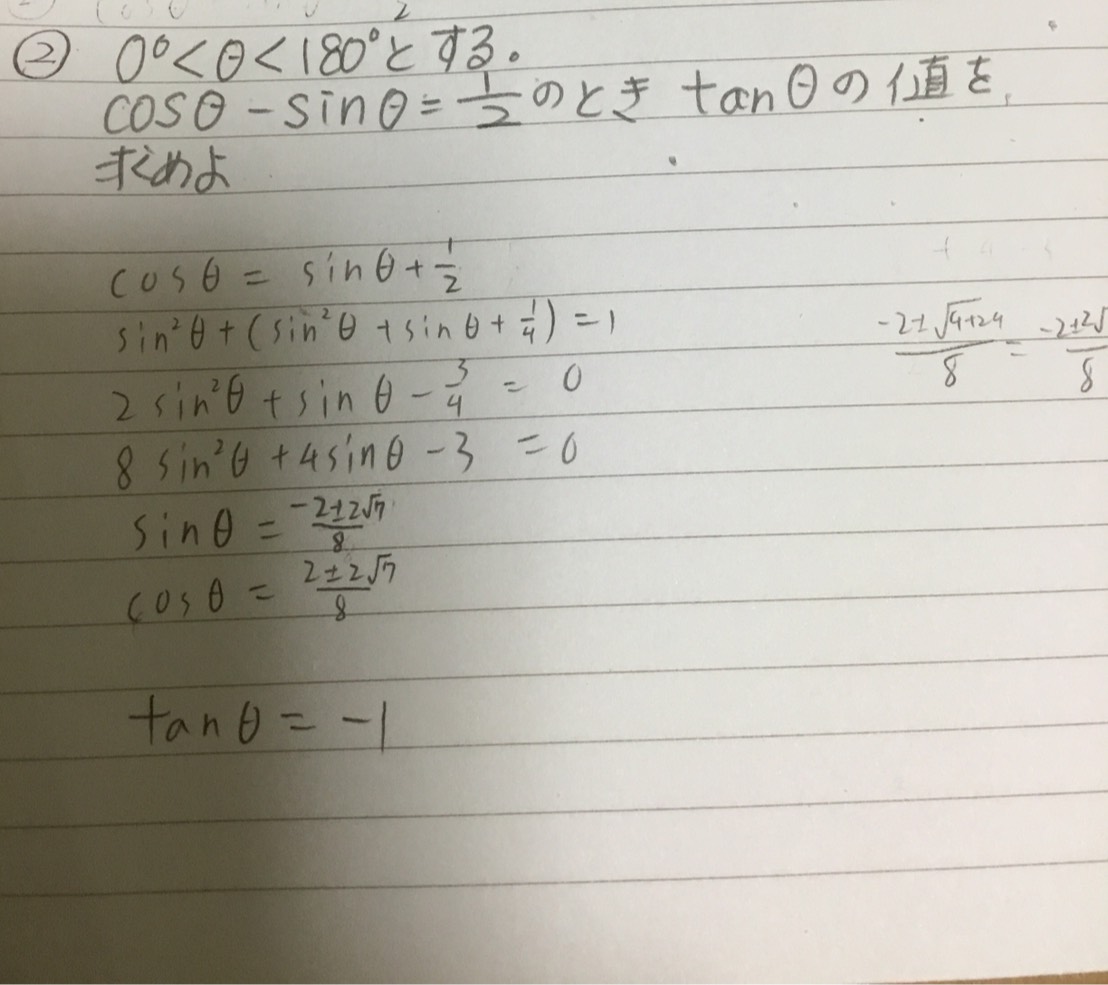 ② 0°<θ<180°とする。
cosθ-sinθ=1/2のとき tanθの値を
求めよ
cosθ = sinθ+1/2
sin²θ+(sin²θ+sinθ+1/4)=1
-2±√4+24/8 = -2±2√/8
2sin²θ+sinθ-3/4 = 0
8sin²θ+4sinθ-3 =0
sinθ = -2±2√7/8
cosθ = 2±2√7/8
tanθ = -1